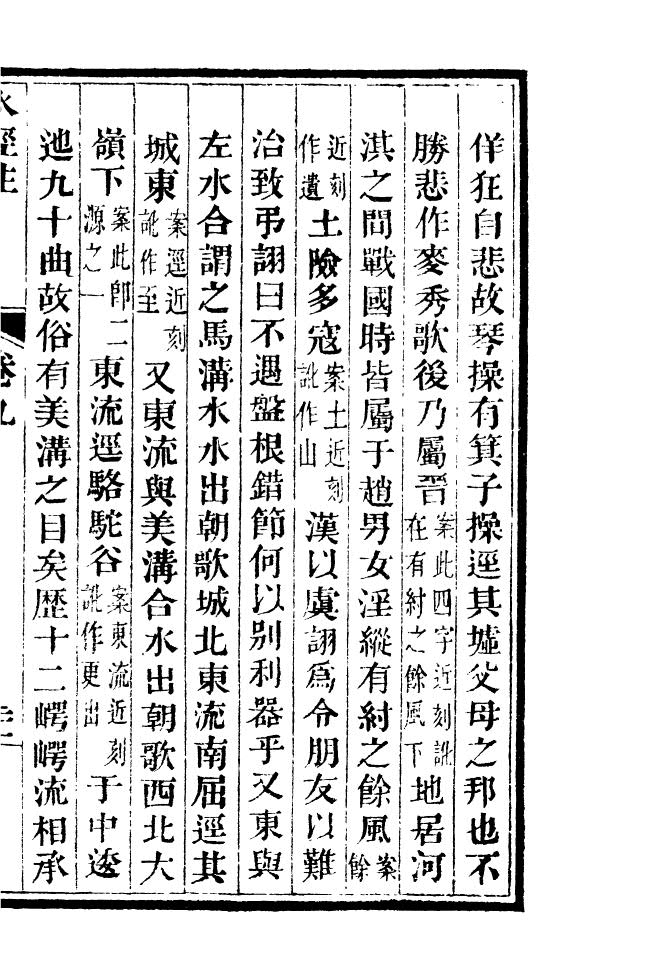 佯狂自悲故琴操有箕子操逕其墟父母之邦也不
勝悲作麥秀歌後乃屬晉案此四字近刻訛在有紂之餘風下地居河
淇之間戰國時皆屬于趙男女淫縱有紂之餘風案餘
近刻作遺土險多寇案土近刻訛作山漢以虞詡爲令朋友以難
治致弔詡曰不遇盤根錯節何以别利器乎又東與
左水合謂之馬溝水水出朝歌城北東流南屈逕其
城東案逕近刻訛作至又東流與美溝合水出朝歌西北大
嶺下案此即二源之一東流逕駱駝谷案東流近刻訛作更出于中逶
迆九十曲故俗有美溝之目矣歷十二崿崿流相承
水經注 卷九